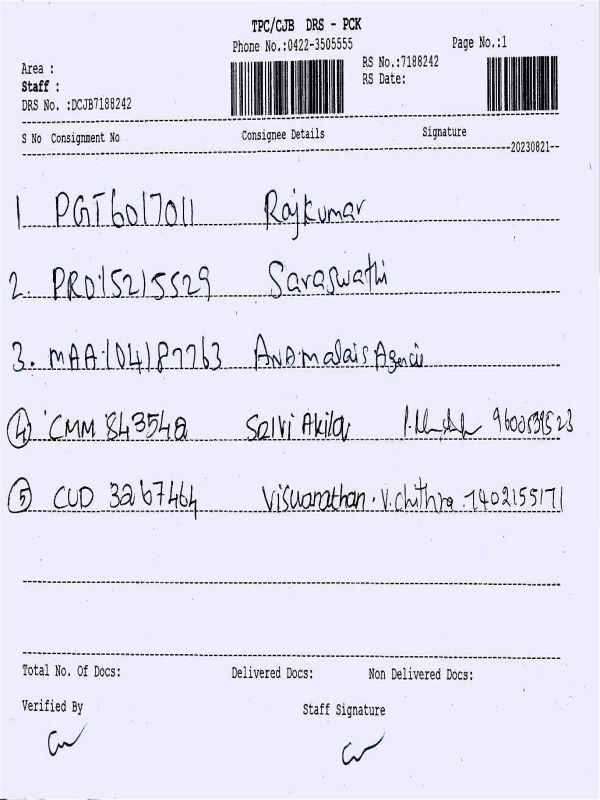 TPC/CJB DRS - PCK
Phone No.:0422-3505555 Page No.:1
Area : RS No.:7188242
Staff : RS Date:
DRS No. :DCJB7188242
S No Consignment No Consignee Details Signature
20230821
1 PGT6017011 Rajkumar
2. PRD15215529 Saraswathi
3. MAA104187763 Anamalais Agencies
4 CMM 843542 Selvi Akila
5 CUD 3267464 Viswanathan. V. chithra 7402155171
Total No. Of Docs: Delivered Docs: Non Delivered Docs:
Verified By Staff Signature